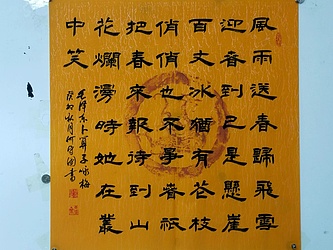 風雨送春歸飛雪
迎春到已是懸崖
百丈冰猶有花枝
俏俏也不爭春祇
把春來報待到山
花爛漫時她在叢
中笑
毛澤東卜算子咏梅
癸卯秋月何書